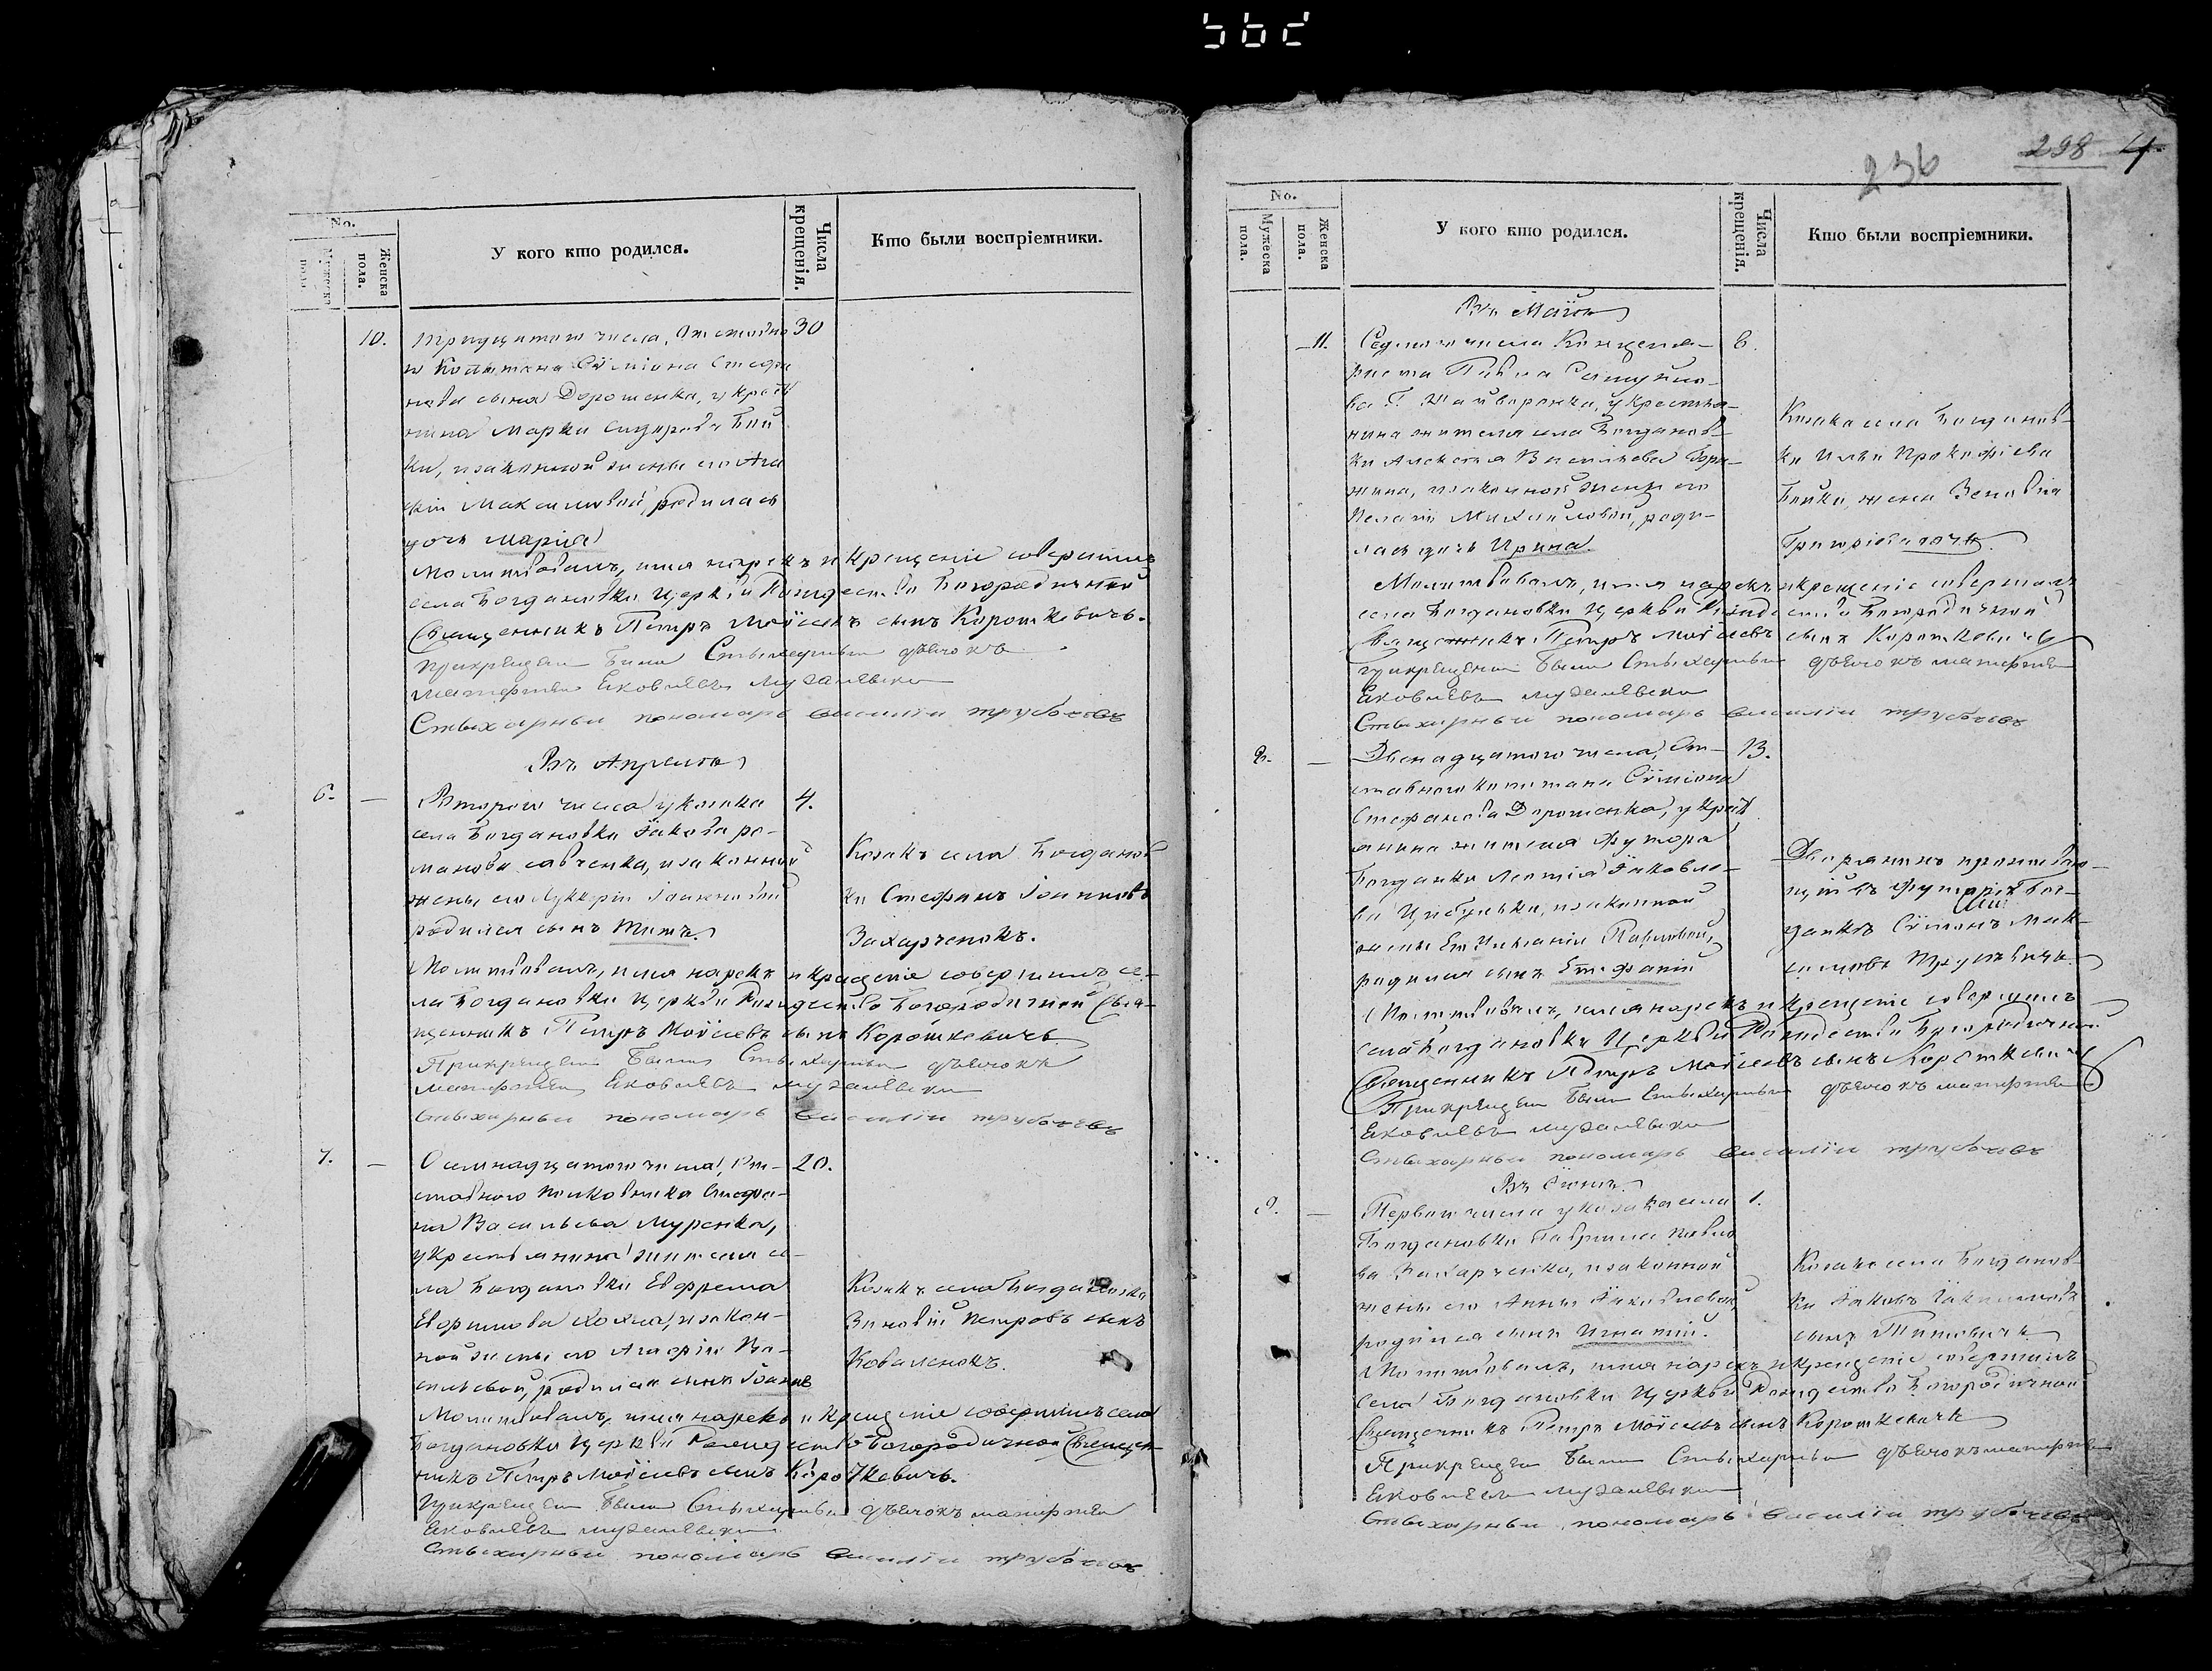 No.
Мужеска пола.
Женска пола.
У кого кто родился.
Числа крещенія.
Кто были воспріемники.
10.
тридцатого числа, Отставно 30
го Капитана Сѵміона Стефа
нова сына Дорошенка, у крест
нина Марка Сидорова Бой
ки, и законной жены его Ага
фіи Максимовой, родилась
дочь Марія
Молитвовалъ, имя нарекъ и крещеніе совершилъ
села Богдановки церкви Рождество Богородичной
Священникъ Петръ Моѵсеевъ сынъ Короткевичъ.
прикрещеніи были Стыхарный дьячокъ
Яковлевъ
Стыхарный пономарь василіи трубачевъ
Въ Апреле
6. — Второго числа у козака 4.
села Богдановки Іакова Ро-
манова Савченка, и законной
жены его Луккеріи Іоанновой
родился сынъ Титъ.
Козакъ села Богданов
ки Стефанъ Іоанновъ
Захарченокъ.
Молитвовалъ, имя нарекъ и крещеніе совершилъ се-
ла Богдановки церкви Рождество Богородичной Свя-
щенникъ Петръ Моѵсеевъ сынъ Короткевичъ
Прикрещеніи были Стыхарный дьячокъ
Яковлевъ
Стыхарный пономарь василіи трубачевъ
7. — Осемнадцатого числа, От- 20.
ставного Полковника Стефа-
на Васильева Муренка,
у крестьянина жителя се-
ла Богдановки Евфрема
Ефримова Хохла, и закон-
ной жены его Агафіи Ва-
сильевой, родился сынъ Іоаннъ
Козакъ села Богдановки
Зиновій Петровъ сынъ
Коваленокъ.
Молитвовалъ, имя нарекъ и крещеніе совершилъ села
Богдановки церкви Рождество Богородичной Священ-
никъ Петръ Моѵсеевъ сынъ Короткевичъ.
Прикрещеніи были Стыхарный дьячокъ
Яковлевъ
Стыхарный пономарь василіи трубачевъ
236 298 4
No.
Мужеска пола.
Женска пола.
У кого кто родился.
Числа крещенія.
Кто были воспріемники.
Въ Маіи
11. Седмого числа Канцеля- 8.
риста Павла
ва Г. Жайворонка, у крестья-
нина жителя села Богданов-
ки Алексея Васильева
и законной жены его
Пелагіи Михайловой, роди-
лась дочь Ирина.
Козака села Богданов-
ки Ильи Прокофіева
Бойки, жена Зеновія
Григоріева дочь.
Молитвовалъ, имя нарекъ и крещеніе совершилъ
села Богдановки церкви Рождество Богородичной
Священникъ Петръ Моѵсеевъ сынъ Короткевичъ
Прикрещеніи были Стыхарный дьячокъ
Яковлевъ
Стыхарный пономарь василіи трубачевъ
8. — Двенадцатого числа, От- 13.
ставного капитана Сѵміона
Стефанова Дорошенка, у крест
янина жителя Футора
Богданки Леонтія Іаковле-
ва Цибульки, и законной
жены Павловой,
родился сынъ Епифаній
Дворянинъ
щій въ футоре Бог-
данке Сѵмонъ Мак-
симовъ
Молитвовалъ, имя нарекъ и крещеніе совершилъ
села Богдановки Церкви Рождество Богородичной
Священникъ Петръ Моѵсеевъ сынъ Короткевичъ
Прикрещеніи были Стыхарный дьячокъ
Яковлевъ
Стыхарный пономарь василіи трубачевъ
Въ Іюни
9. — Первого числа у козака села 1.
Богдановки Гавриила Павло
ва Захарченка, и законной
жены его Анны Іаковлевой,
родился сынъ Игнатій.
Козакъ села Богданов-
ки Іаковъ
сынъ Титовичъ
Молитвовалъ, имя нарекъ и крещеніе совершилъ
села Богдановки церкви Рождество Богородичной
Священникъ Петръ Моѵсеевъ сынъ Короткевичъ
Прикрещеніи были Стыхарный дьячокъ
Яковлевъ
Стыхарный пономарь василіи трубачевъ